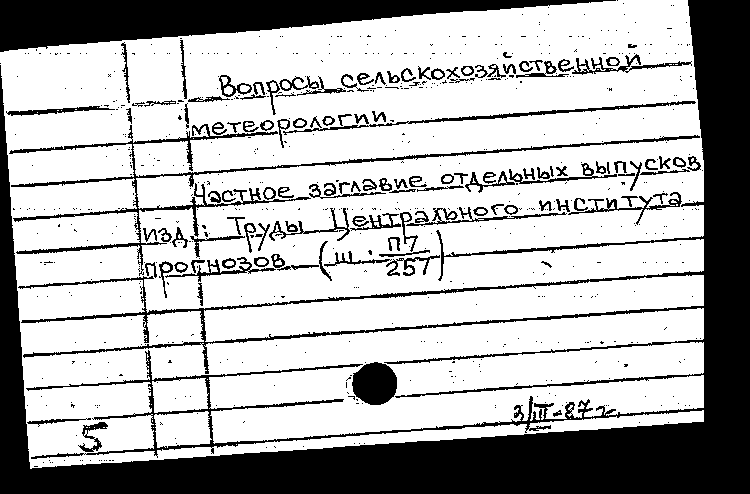 Вопросы сельскохозяйственной
метеорологии.
Частное заглавие отдельных выпусков
изд.: Труды Центрального института
прогнозов (Ш · П7/257)
3/III-87 г.
5